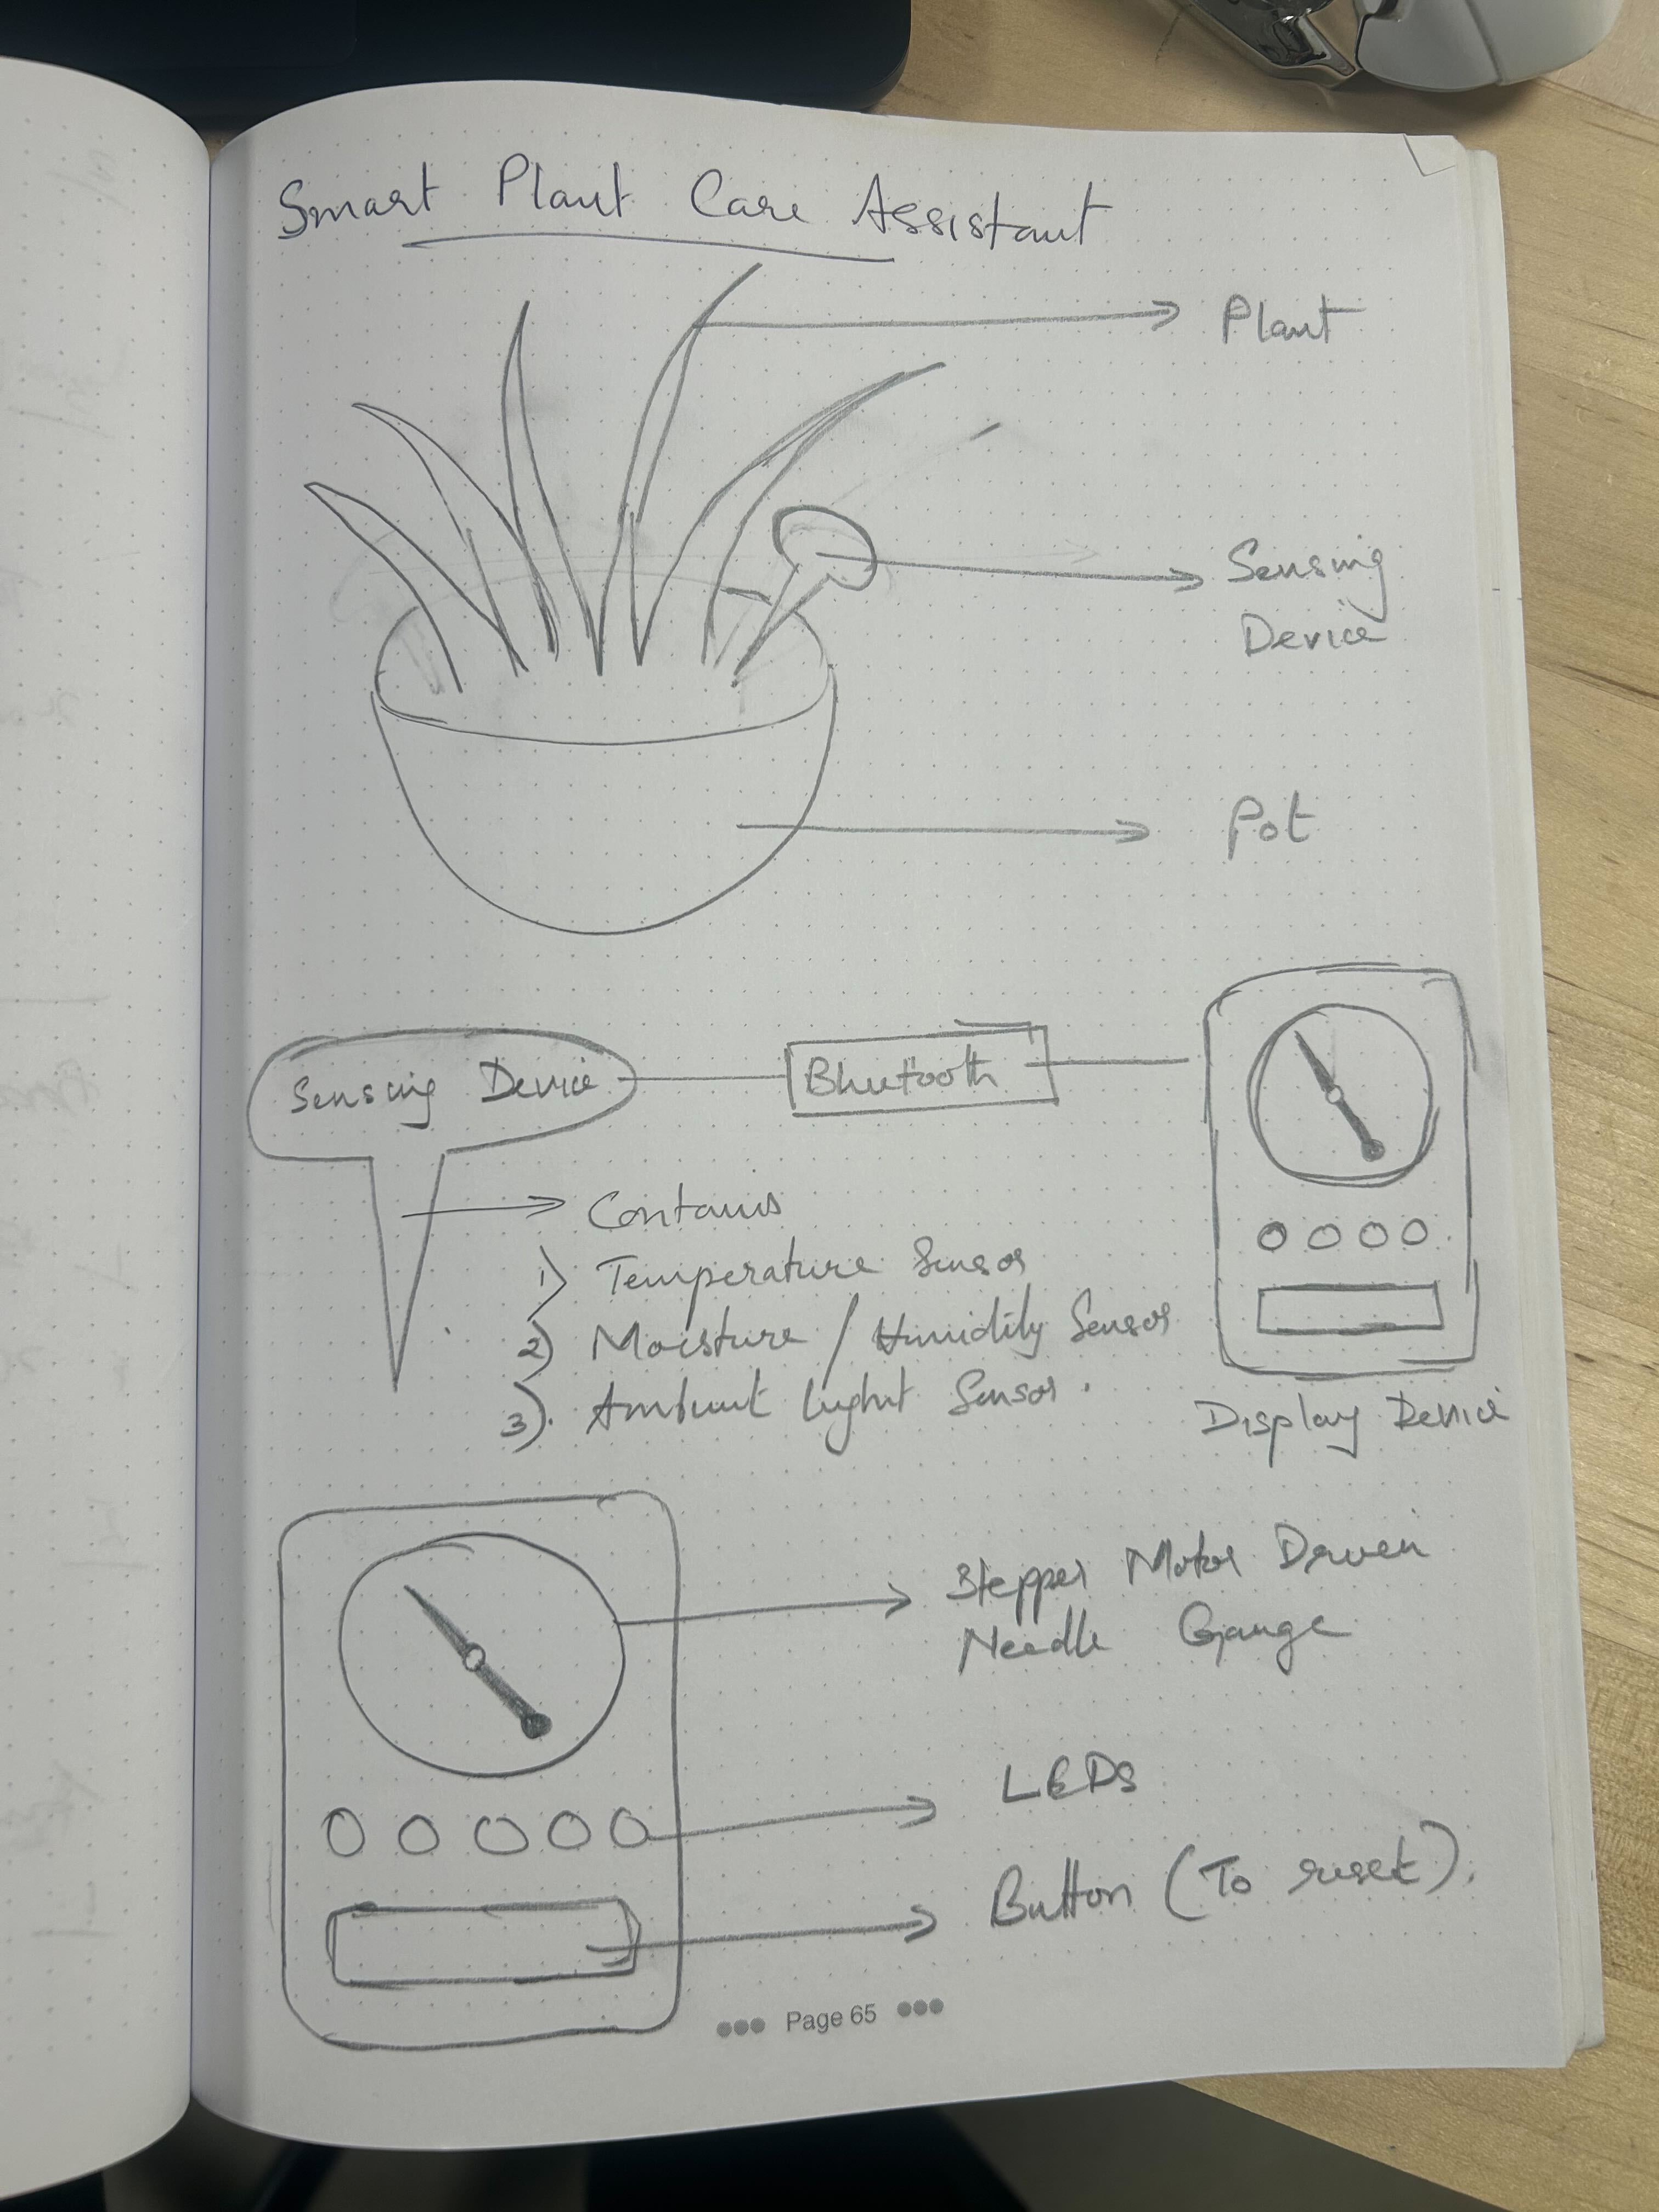 Smart Plant Care Assistant
Plant
Sensing
Device
Pot
Sensing Device
Bluetooth
Contains
1) Temperature Sensor
2) Moisture / Humidity Sensor
3). Ambient Light Sensor.
Display Device
Stepper Motor Driven
Needle Gauge
LEDs
Button (To reset).
Page 65